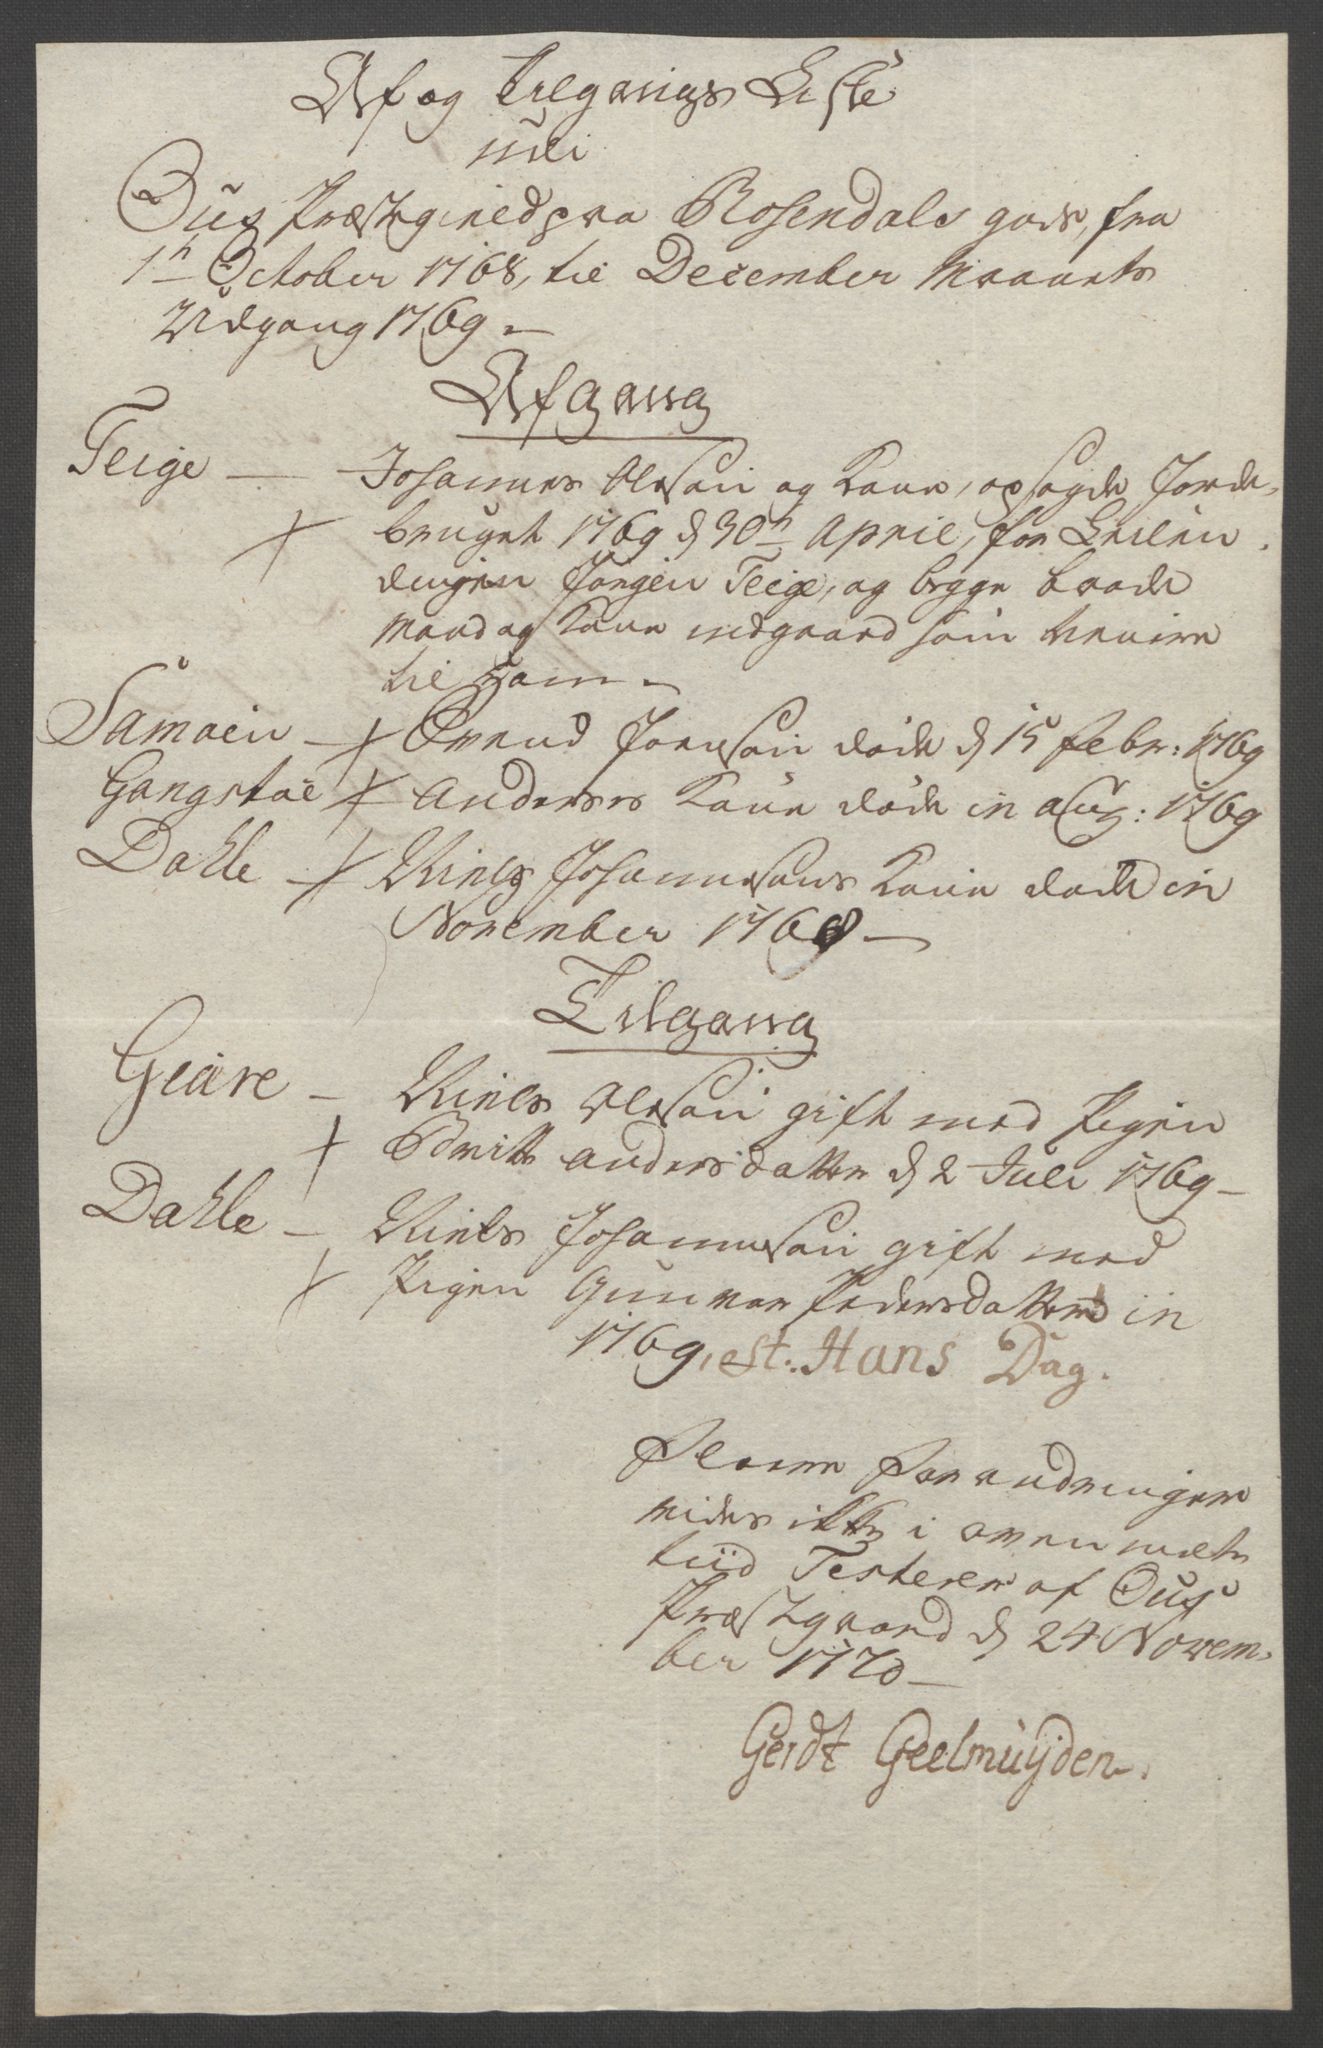 Af og Tilgangs Liste
udi
Ous Præstegield paa Rosendals gods, fra
1te October 1768, til December Maanets
Udgang 1769 –
Afgang
Teige – Johannes Olesøn og Kone, opsagde Jorde-
bruget 1769 d 30te April, for Leilæn-
dingen Jørgen Teige, og begge baade
Mand og Kone indgaaed som tienere
til ham –
Samoen – Ørend Joensøn døde d 15 Febr: 1769
Gangstøe Anderses Kone døde in Aug: 1769
Dahle – Niels Johannesøns Kone døde in
November 1768 –
Tilgang
Geare – Niels Olesøn gift med Pigen
Andersdatter d 2 Juli 1769 –
Dahle – Niels Johannesøn gift med
Pigen Gunvor Pedersdatter in
1769, St. Hans Dag.
Fleere Forandringer
vides ikke i oven melte
tiid Testerer af Ous
Præstegaard d 24 Novem-
ber 1770 –
Gerdt Geelmuijden.